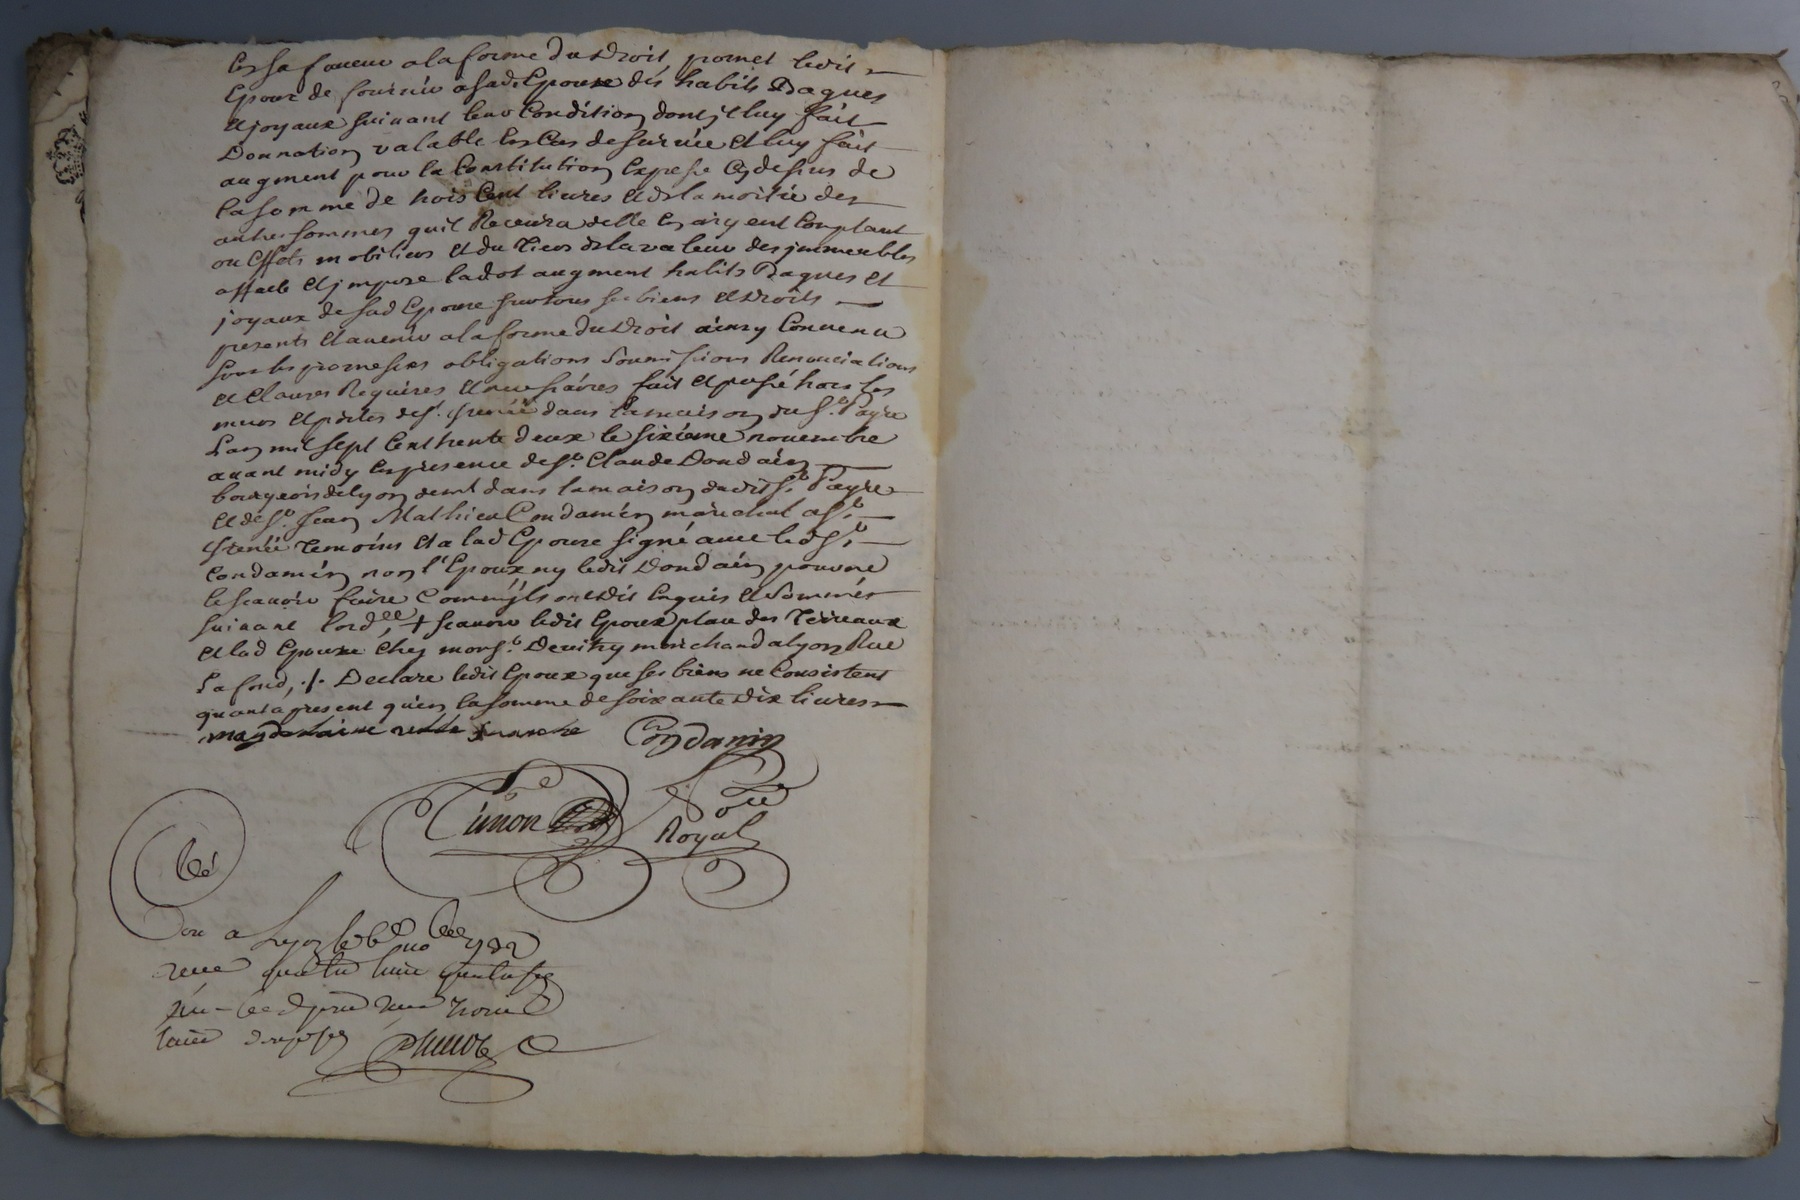 en sa faveur a la forme du droit promet ledit
Epoux de fournir a sad. Epouze des habits Bagues
et joyaux suivant leur Condition dont jl luy fait
Donnation valable en Cas de survie et luy fait
augment pour la Constitution Expresse Cy dessus de
la somme de trois Cent livres et de la moitié des
autres sommes quil Recevra delle en argent Comptant
ou Effets mobiliers et du tiers de la valeur des jmmeubles
affecte et jmpoze ladot augment habits Bagues et
joyaux de sad Epouze sur tous ses biens et droits
presents et avenir a la forme du droit ainsy Convenu
sous les promesses obligations Soumissions Renonciations
et Clauses Requises et necessaires fait et passé hors les
murs et portes de st. jrenée dans la maison du sr. Payre
L'an mil sept Cent trente deux le sixieme novembre
avant midy en presence de sr. Claude Dondain
bourgeois de lyon demt dans la maison dudit sr. Payre
et de sr. Jean Mathieu Condamin maréchal a st.
jrenée temoins et a lad Epouze signé avec led sr.
Condamin non l'Epoux ny ledit Dondain pour ne
le scavoir faire Comm'jls ont dit Enquis et Sommés
suivant lord.ce, + scavoir ledit Epoux place des Terreaux
et lad Epouze Chez monsr. Devitry marchand a lyon Rue
Lafond, ./. Declare ledit Epoux que ses biens ne Consistent
quant a present qu'en la somme de soixante dix livres
magdelaine
Condamin
Royal
a Lyon le